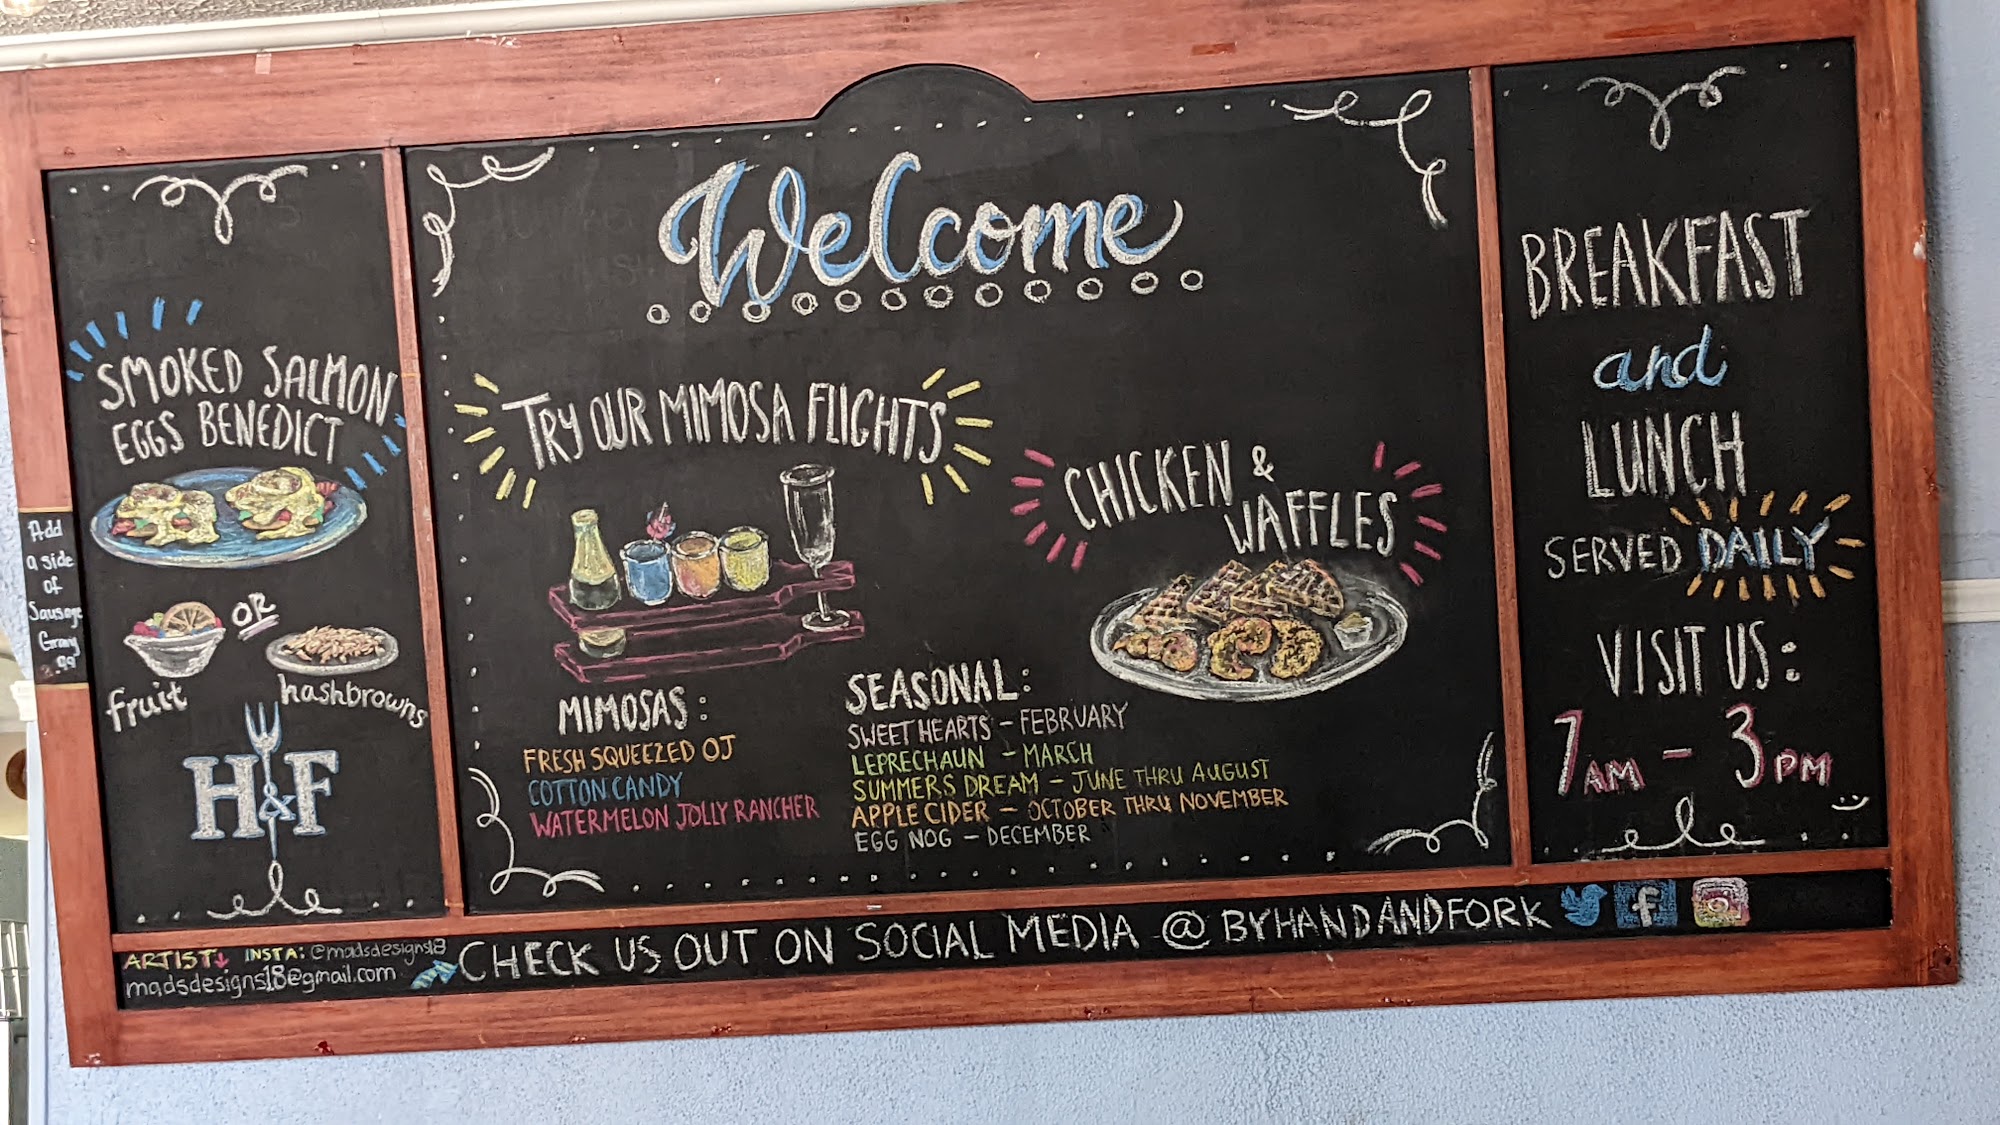 Welcome
SMOKED SALMON
EGGS BENEDICT
Add
a side
of
Sausage
Gravy
fruit
OR
hashbrowns
H&F
TRY OUR MIMOSA FLIGHTS
MIMOSAS:
FRESH SQUEEZED OJ
COTTON CANDY
WATERMELON JOLLY RANCHER
SEASONAL:
SWEET HEARTS - FEBRUARY
LEPRECHAUN - MARCH
SUMMERS DREAM - JUNE THRU AUGUST
APPLE CIDER - OCTOBER THRU NOVEMBER
EGG NOG - DECEMBER
CHICKEN &
WAFFLES
BREAKFAST
and
LUNCH
SERVED DAILY
VISIT US:
7AM - 3PM
ARTIST↓ INSTA: @madsdesigns18
madsdesigns18@gmail.com
CHECK US OUT ON SOCIAL MEDIA @BYHANDANDFORK